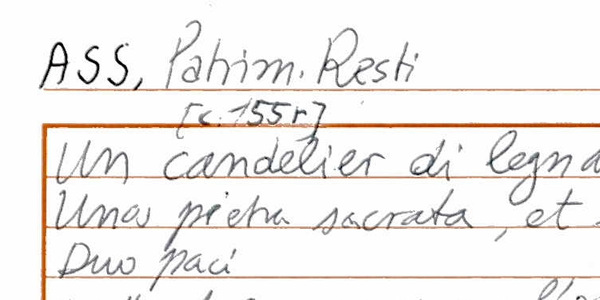 ASS, Patrim. Resti
[c. 155r]
Un candelier di legn
Una pietra sacrata, et
Duo paci